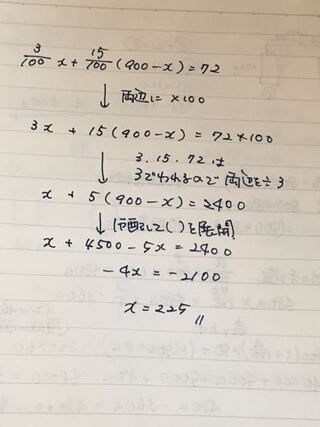 3/100 x + 15/100 (900 - x) = 72
↓ 両辺に ×100
3x + 15(900 - x) = 72×100
3.15.72は
↓ 3でわれるので両辺を÷3
x + 5(900 - x) = 2400
↓ して( )を展開
x + 4500 - 5x = 2400
-4x = -2100
x = 225 〃